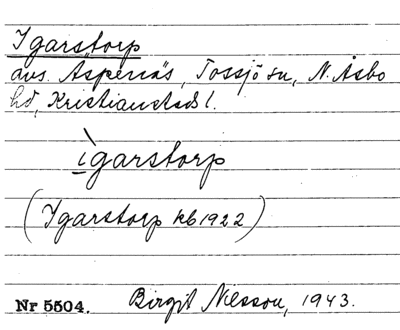 Igarstorp
avs. Asperiäs, Tossjö sn, N. Åsbo
hd, Kristianstads l.
ìgarstorp
(Igarstorp kb 1922)
Nr 5504. Birgit Nilsson, 1943.